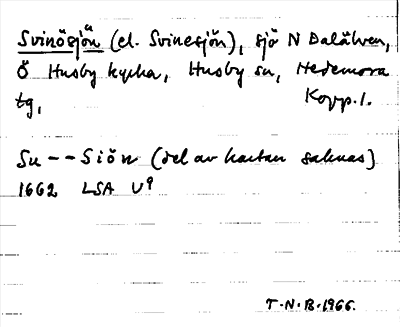 Svinösjön (el. Svinesjön), sjö N Dalälven,
Ö Husby kyrka, Husby sn, Hedemora
tg, Kopp.l.
Su--Siön (del av kartan saknas)
1662 LSA U9
T.N.B.1966.